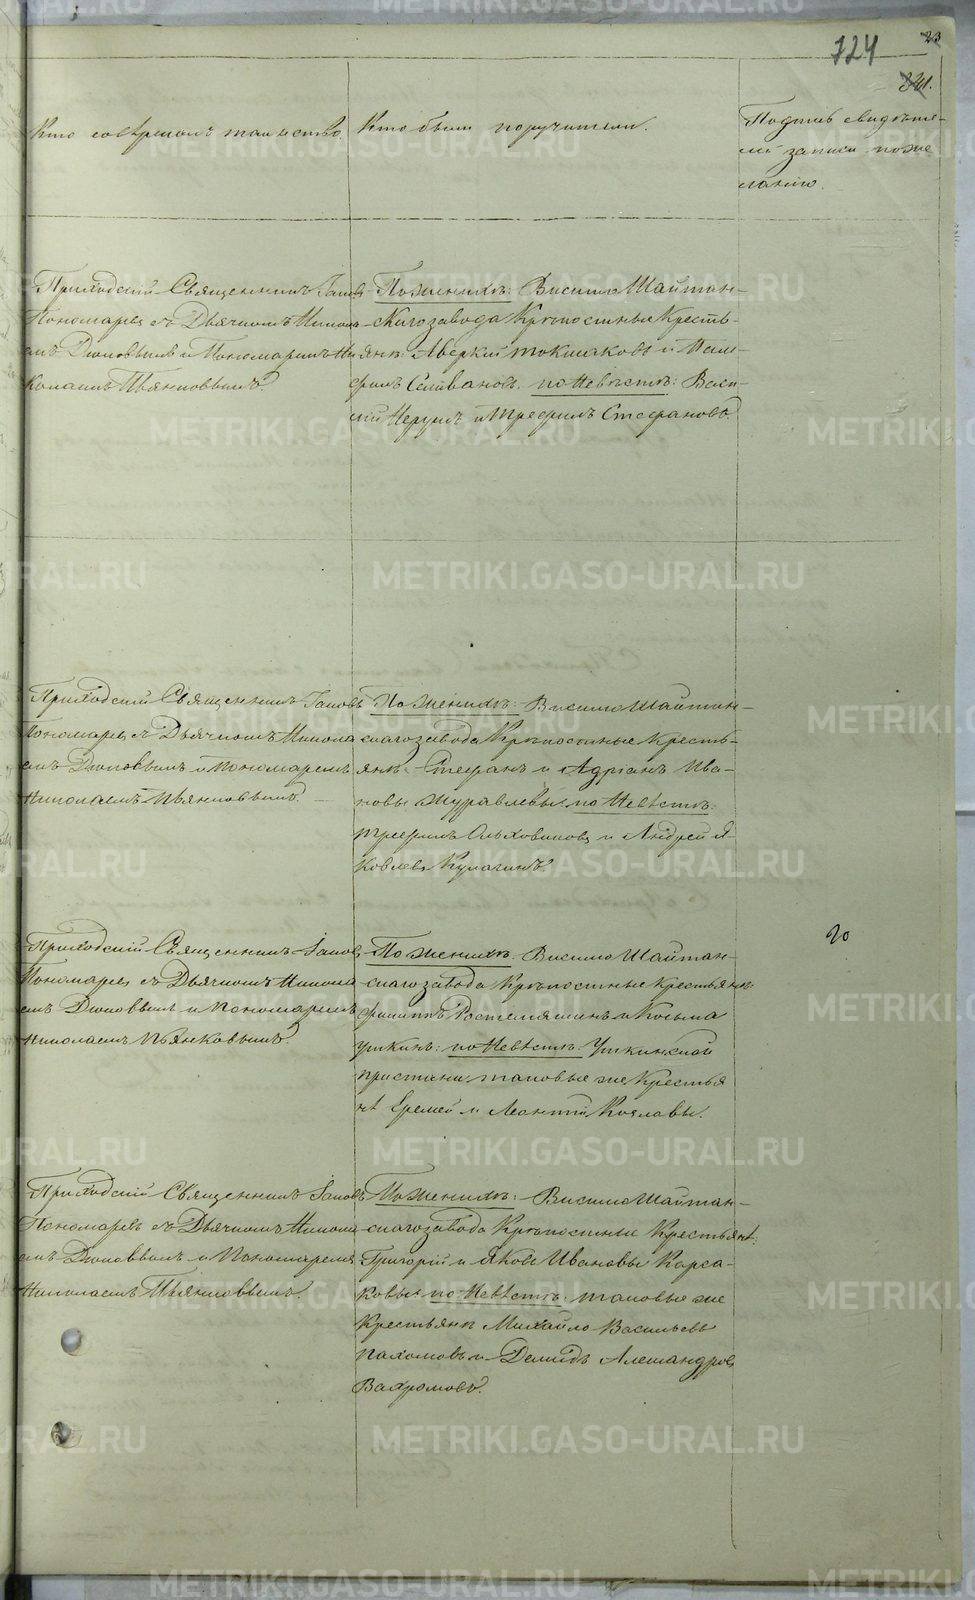 724
23
Кто совершалъ таинство.
Кто были поручители.
Подпись свидѣте-
лей записи по же
ланію.
Приходскій Священникъ Іаковъ
Пономаревъ съ Дьячкомъ Никола
емъ Поповымъ и Пономаремъ Ни
колаемъ Пьянковымъ.
По женихѣ: Висимо Шайтан-
скаго завода Крѣпостные Кресть-
яне: Аверкій и
Селивановъ. по Невѣстѣ: Васи-
лій и Трефилъ Стефановъ.
Приходскій Священникъ Іаковъ
Пономаревъ съ Дьячкомъ Никола
емъ Поповымъ и Пономаремъ
Николаемъ Пьянковымъ.
По женихѣ: Висимо Шайтан-
скаго завода Крѣпостные Кресть-
яне Стефанъ и Адріанъ Ива-
новы Журавлевы: по Невѣстѣ:
Трефилъ Ольховиковъ и Андрей Я
ковлевъ Кулагинъ.
Приходскій Священникъ Іаковъ
Пономаревъ съ Дьячкомъ Никола
емъ Поповымъ и Пономаремъ
Николаемъ Пьянковымъ.
По женихѣ: Висимо Шайтан-
скаго завода Крѣпостные Крестьяне
Филиппъ и Козьма
Уткинъ: по Невѣстѣ: Уткинской
пристани таковые же Крестья
не Еремей и Леонтій
20
Приходскій Священникъ Іаковъ
Пономаревъ съ Дьячкомъ Никола
емъ Поповымъ и Пономаремъ
Николаемъ Пьянковымъ.
По женихѣ: Висимо Шайтан-
скаго завода Крѣпостные Крестьяне:
Григорій и Яковъ Ивановы Карса-
ковы: по Невѣстѣ: таковые же
Крестьяне Михайло Васильевъ
Пахомовъ и Демидъ Александровъ
Вахромовъ.
METRIKI.GASO-URAL.RU